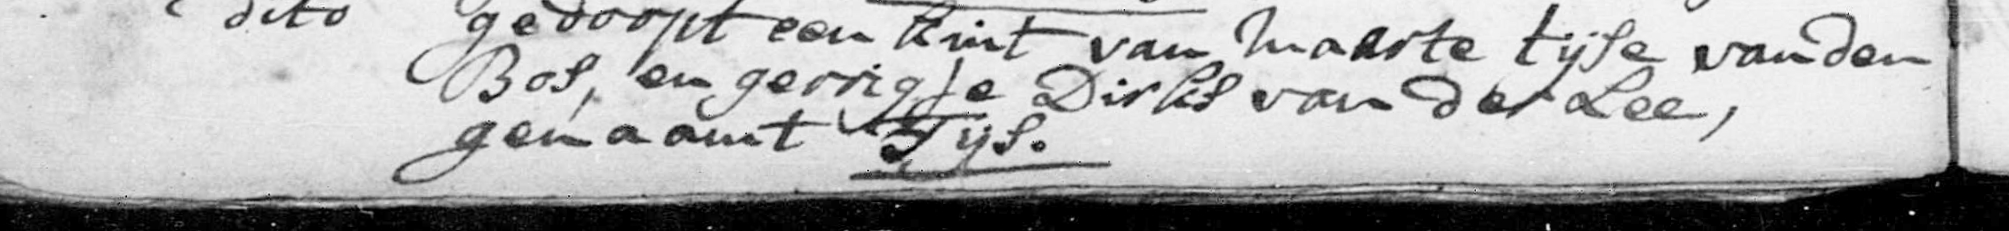 dito gedoopt een kint van maarte tijse vanden
Bos, en gerrigje Dirks van der Lee,
genaamt Tijs.